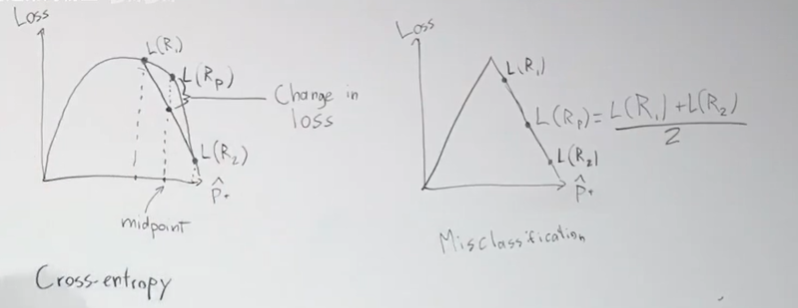 Loss
L(R₁)
L(Rp)
Change in
loss
L(R₂)
p̂+
midpoint
Cross-entropy
Loss
L(R₁)
L(Rp) = L(R₁) + L(R₂)
2
L(R₂)
p̂+
Misclassification